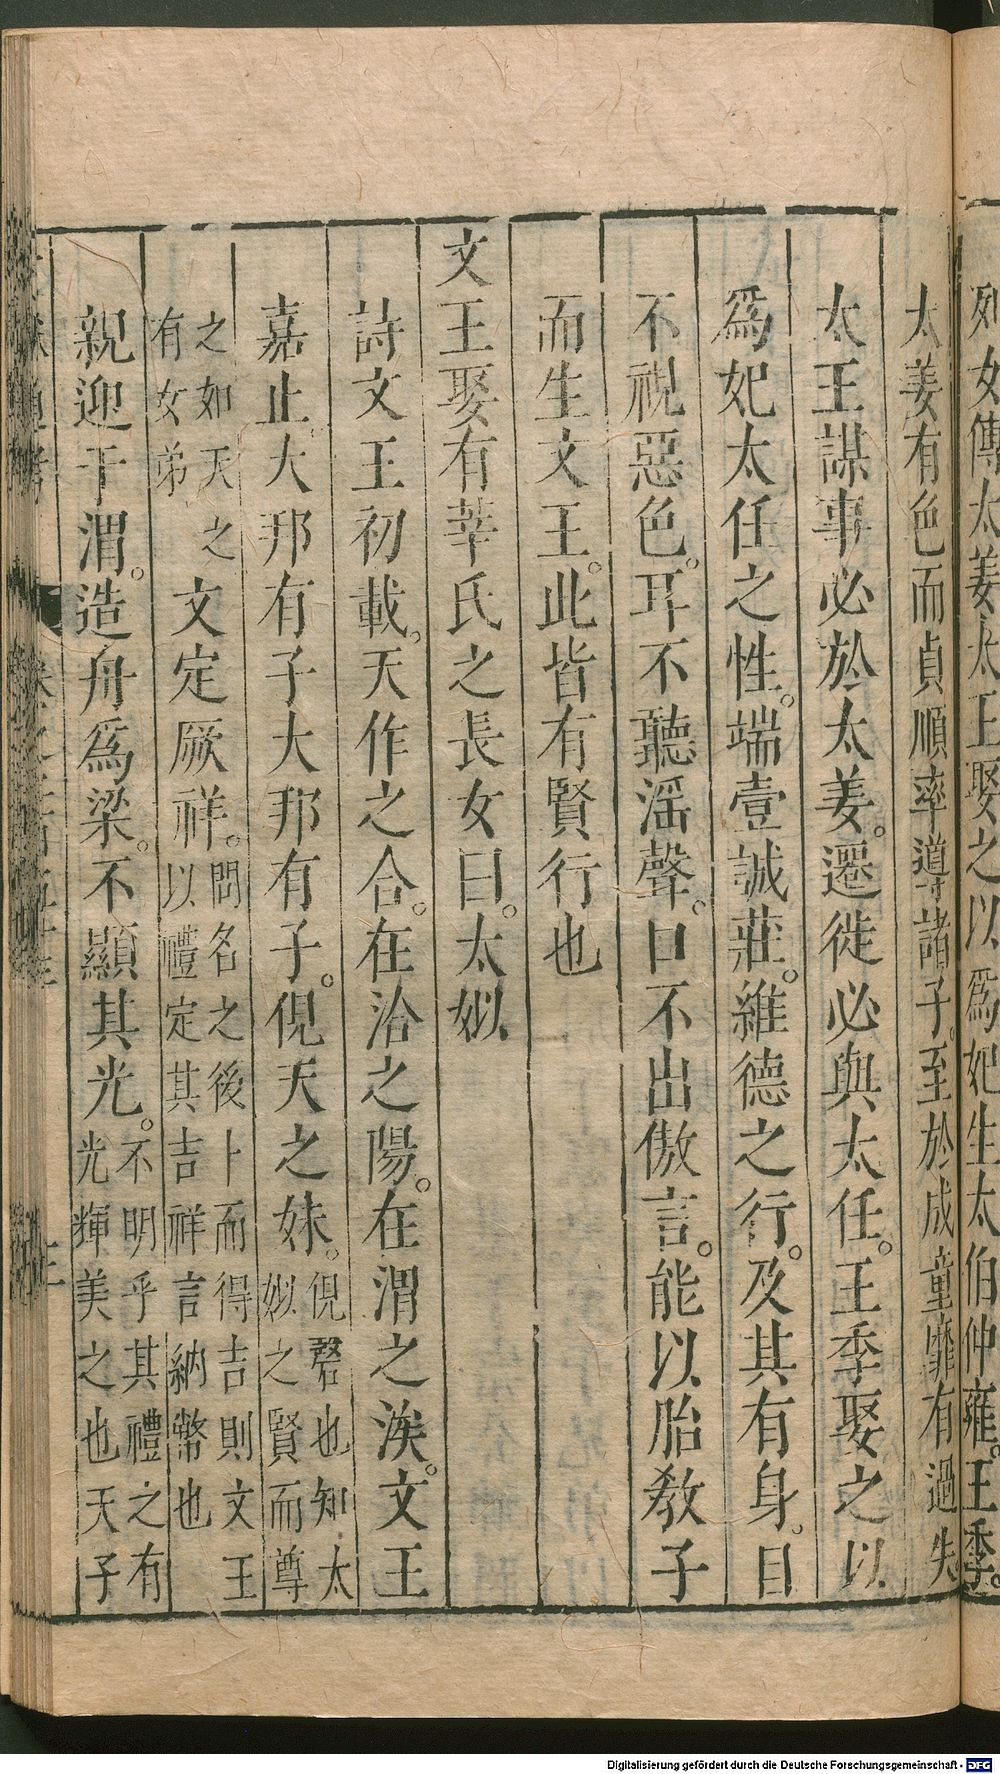 列女傳太姜太王娶之以爲妃生太伯仲雍。王季。
太姜有色而貞順率道諸子。至於成童靡有過失
太王謀事必於太姜。遷徙必與太任。王季娶之以
爲妃太任之性。端壹誠莊。維德之行。及其有身。目
不視惡色。耳不聽淫聲。口不出傲言。能以胎教子
而生文王。此皆有賢行也
文王娶有莘氏之長女曰。太姒
詩文王初載。天作之合。在洽之陽。在渭之涘。文王
嘉止。大邦有子大邦有子。俔天之妹。俔磬也知太
姒之賢而尊
之如天之
有女弟
文定厥祥。問名之後卜而得吉則文王
以禮定其吉祥言納幣也
親迎于渭。造舟爲梁。不顯其光。不明乎其禮之有
光輝美之也天子
Digitalisierung gefördert durch die Deutsche Forschungsgemeinschaft - DFG